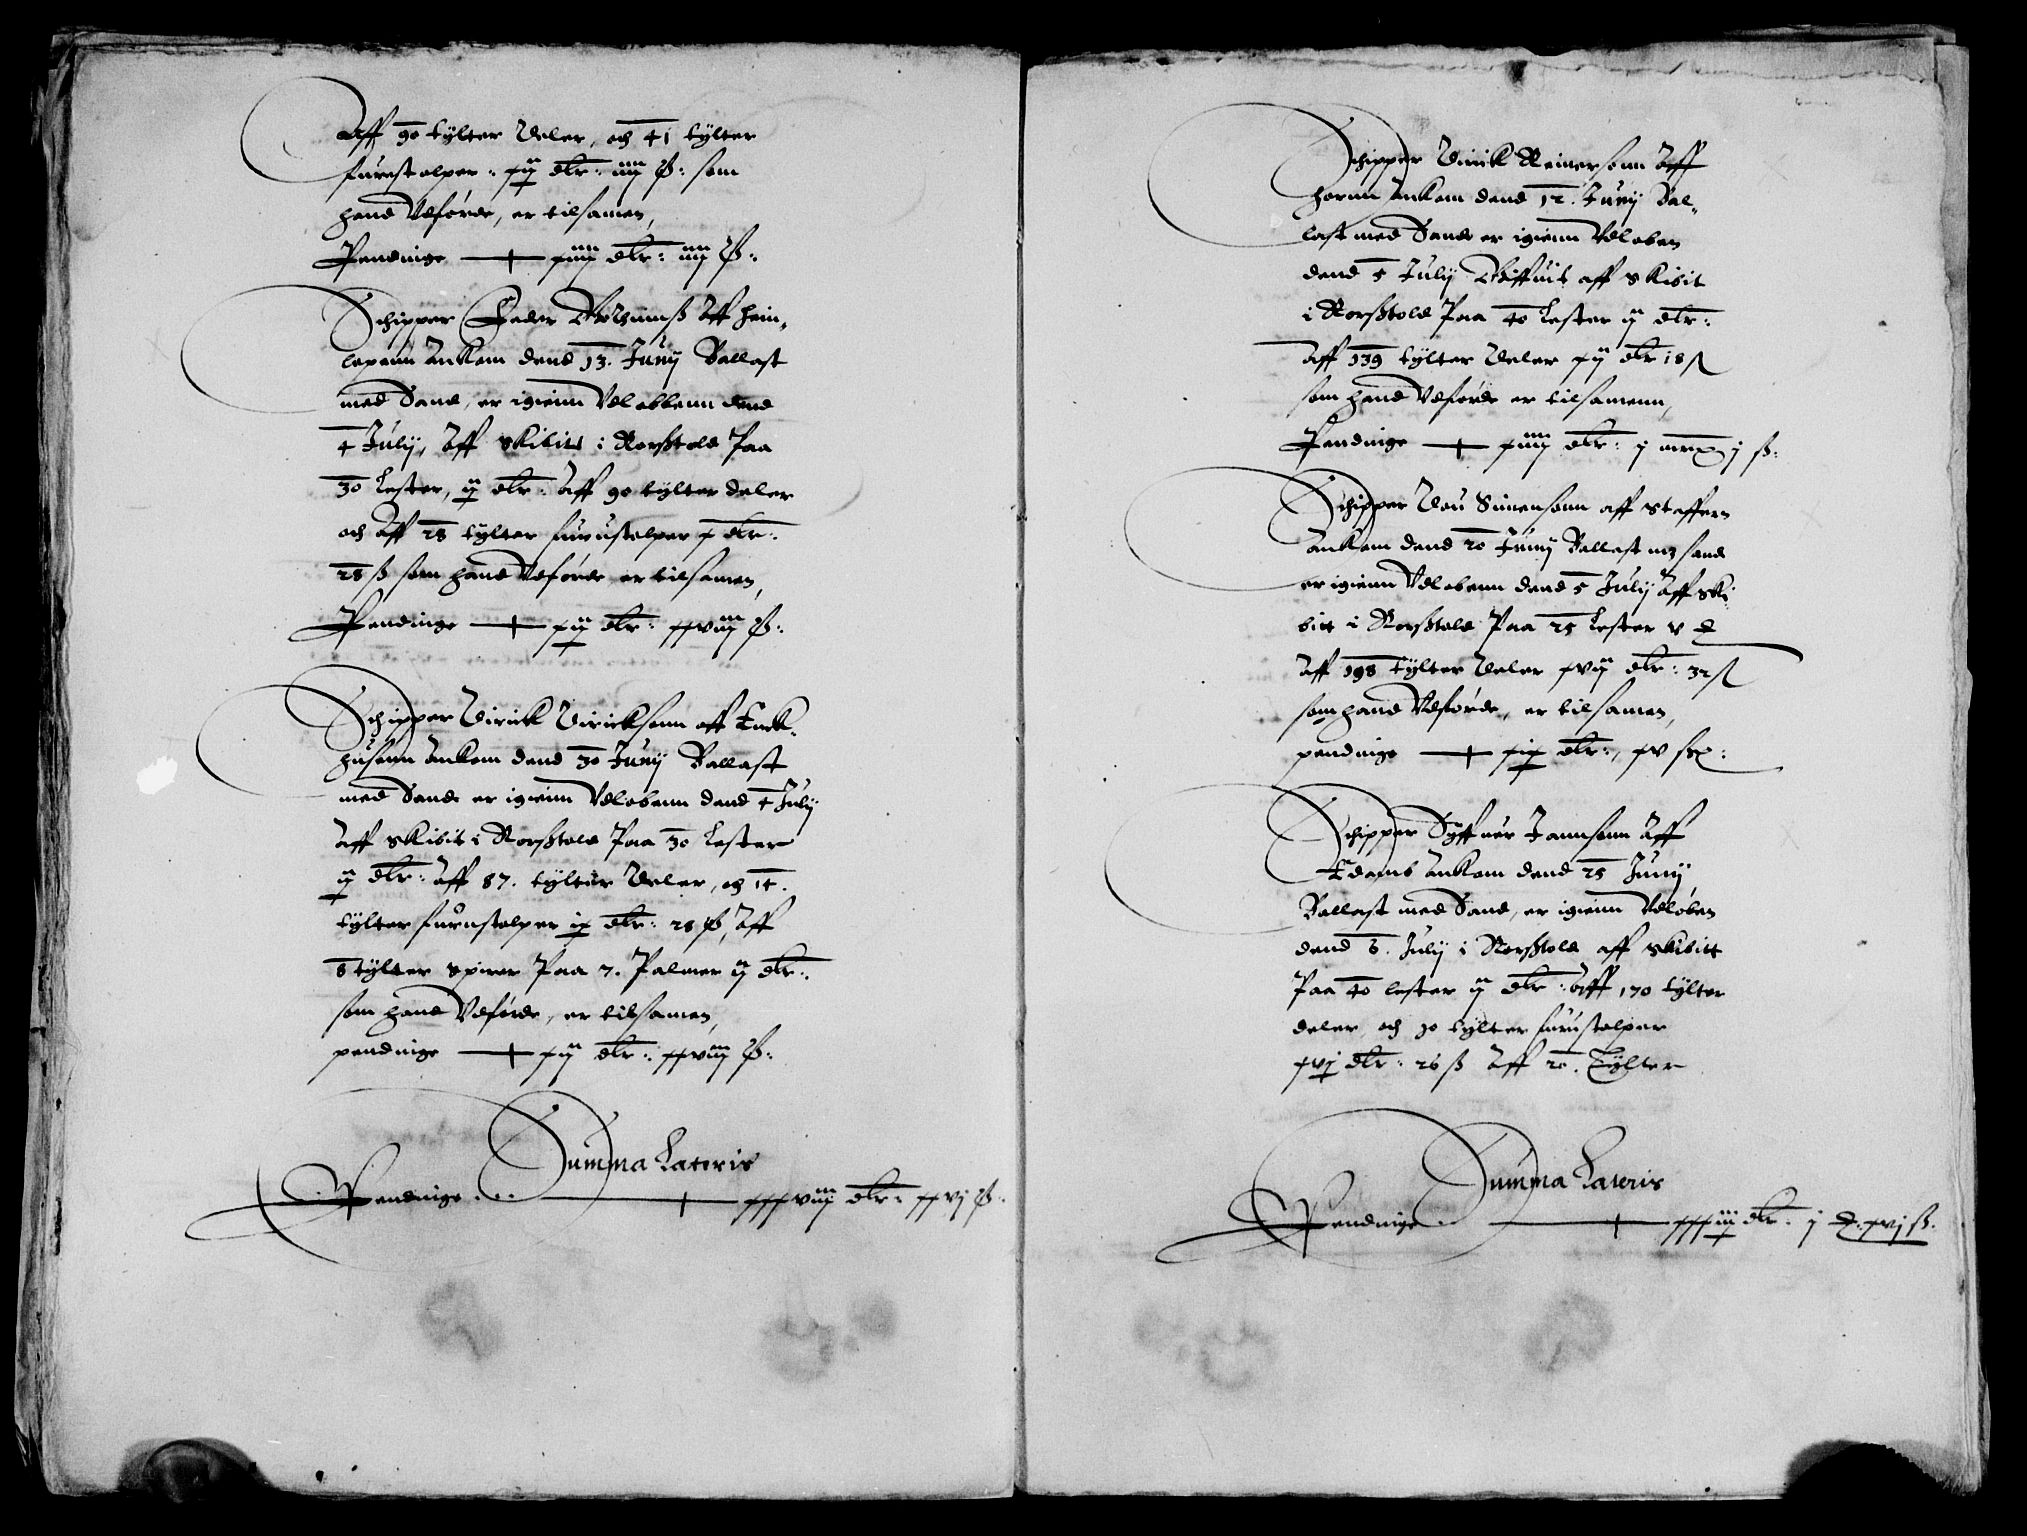 Aff 90 tylter Deler, och 41 tylter
furustolper: xij dlr: iiij ß: som
hand Vdførde, er tilsamen,
Pendinge —— xiiij dlr: iiij ß:
Schipper Peder aff Hein,
lopenn Ankom dend 13. Junij Ballast
med Sand, er igienn Vdlobbenn dend
4 Julij, Aff Skibitt i Rorßtold Paa
30 Lester, ij dlr: Aff 90 tylter deler
och Aff 28 tylter furustolper x dlr:
28 ß som hand Vdførde er tilsamen,
Pendinge —— xij dlr: xxviij ß:
Schipper Dirick Diricksenn aff Enck-
husenn Ankom dend 30 Junij Ballast
med Sande er igienn Vdlobenn dend 4 Julij
Aff Skibit i Rorßtold Paa 30 Lester
ij dlr: Aff 87. tylter Deler, och 14.
tylter furustolper ix dlr: 28 ß, Aff
8 tylter Spirer Paa 7. Palmer ij dlr:
som hand Vdførde, er tilsamen,
pendinge —— xij dlr: xxviij ß:
Summa Lateris
Pendinge —— xxxviij dlr: xxvj ß:
Schipper Dirick Reinersonn Aff
Hornn Ankom dend 12. Junij Bal,
last med Sande er igienn Vdloben
dend 5 Julij aff Skibit
i Rorßtold Paa 40 Lester ij dlr:
Aff 139 tylter Deler xij dlr 18 ß
som hand Vdførde er tilsamenn,
Pendinge —— xiiij dlr: j mrk j ß:
Schipper Simensonn aff Staffern
Ankom dend 20 Junij Ballast m3 sand
er igienn Vdlobenn dend 5 Julij Aff Ski,
bitt i Rorßtold Paa 25 Lester
Aff 198 tylter Deler xvij dlr: 32 ß
som hand Vdførde, er tilsamen,
pendinge —— xix dlr:, xv
Schipper Syffuer Jannsonn Aff
Edamb Ankom dend 25 Junij
Ballast med Sand, er igienn Vdløben
dend 6. Julij i Rorßtold aff Skibitt
Paa 40 lester ij dlr: Aff 170 tylter
deler och 30 tylter furustolper
xvj dlr: 26 ß Aff 20. Tylter
Summa Lateris
Pendinge —— xxxiij dlr: j xvj ß.